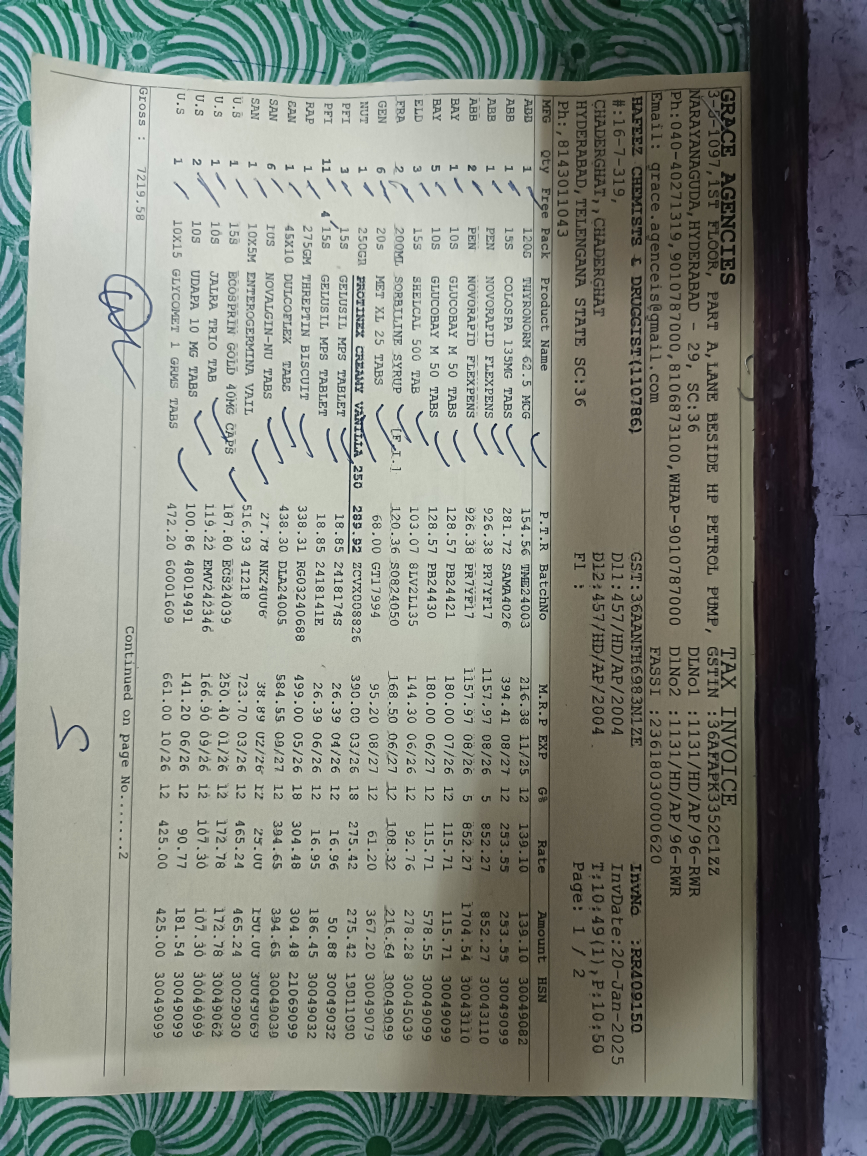 GRACE AGENCIES TAX INVOICE
3-5-1097,1ST FLOOR, PART A,LANE BESIDE HP PETROL PUMP, GSTIN :36AFAPK3352C1ZZ
NARAYANAGUDA,HYDERABAD - 29, SC:36 DLNo1 :1131/HD/AP/96-RWR
Ph:040-40271319,9010787000,8106873100,WHAP-9010787000 DlNo2 :1131/HD/AP/96-RWR
Email: grace.agenceis@gmail.com FASSI :23618030000620
HAFEEZ CHEMISTS & DRUGGIST(110786) GST:36AANFH6983N1ZE InvNo :RR409150
#:16-7-319, Dl1:457/HD/AP/2004 InvDate:20-Jan-2025
CHADERGHAT,,CHADERGHAT Dl2:457/HD/AP/2004 T:10:49(1),P:10:50
HYDERABAD,TELENGANA STATE SC:36 Fl : Page: 1 / 2
Ph:,8143011043
MFG Qty Free Pack Product Name P.T.R BatchNo M.R.P EXP G% Rate Amount HSN
ADD 1 120G THYRONORM 62.5 MCG 154.56 TME24003 216.38 11/25 12 139.10 139.10 30049082
ABB 1 15S COLOSPA 135MG TABS 281.72 SAMA4026 394.41 08/27 12 253.55 253.55 30049099
ABB 1 PEN NOVORAPID FLEXPENS 926.38 PR7YF17 1157.97 08/26 5 852.27 852.27 30043110
ABB 2 PEN NOVORAPID FLEXPENS 926.38 PR7YF17 1157.97 08/26 5 852.27 1704.54 30043110
BAY 1 10S GLUCOBAY M 50 TABS 128.57 PB24421 180.00 07/26 12 115.71 115.71 30049099
BAY 5 10S GLUCOBAY M 50 TABS 128.57 PB24430 180.00 06/27 12 115.71 578.55 30049099
ELD 3 15S SHELCAL 500 TAB 103.07 8LV2L135 144.30 06/26 12 92.76 278.28 30045039
FRA 2 200ML SORBILINE SYRUP [F.I.] 120.36 S0824050 168.50 06/27 12 108.32 216.64 30049099
GEN 6 20S MET XL 25 TABS 68.00 GT17994 95.20 08/27 12 61.20 367.20 30049079
NUT 1 250GR PROTINEX CREAMY VANILLA 250 289.92 ZCVX008826 390.00 03/26 18 275.42 275.42 19011090
PFI 3 15S GELUSIL MPS TABLET 18.85 2418174S 26.39 04/26 12 16.96 50.88 30049032
PFI 11 4 15S GELUSIL MPS TABLET 18.85 2418141E 26.39 06/26 12 16.95 186.45 30049032
RAP 1 275GM THREPTIN BISCUIT 338.31 RG03240688 499.00 05/26 18 304.48 304.48 21069099
SAN 1 45X10 DULCOFLEX TABS 438.30 DLA24005 584.55 09/27 12 394.65 394.65 30049039
SAN 6 10S NOVALGIN-NU TABS 27.78 NK24006 38.89 02/26 12 25.00 150.00 30049069
SAN 1 10X5M ENTEROGERMINA VAIL 516.93 4I218 723.70 03/26 12 465.24 465.24 30029030
U.S 1 15S ECOSPRIN GOLD 40MG CAPS 187.80 EGS24039 250.40 01/26 12 172.78 172.78 30049062
U.S 1 10S JALRA TRIO TAB 119.22 EMV242346 166.90 09/26 12 107.30 107.30 30049099
U.S 2 10S UDAPA 10 MG TABS 100.86 48019491 141.20 06/26 12 90.77 181.54 30049099
U.S 1 10X15 GLYCOMET 1 GRMS TABS 472.20 60001609 661.00 10/26 12 425.00 425.00 30049099
Continued on page No.......2
Gross : 7219.58